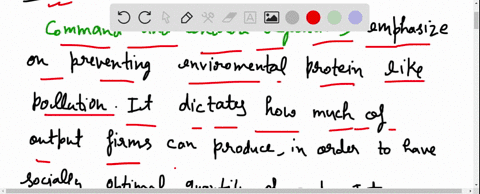 Command and control regulations emphasize
on preventing enviromental protein like
pollution. It dictates how much of
output firms can produce, in order to have
socially optimal quantity